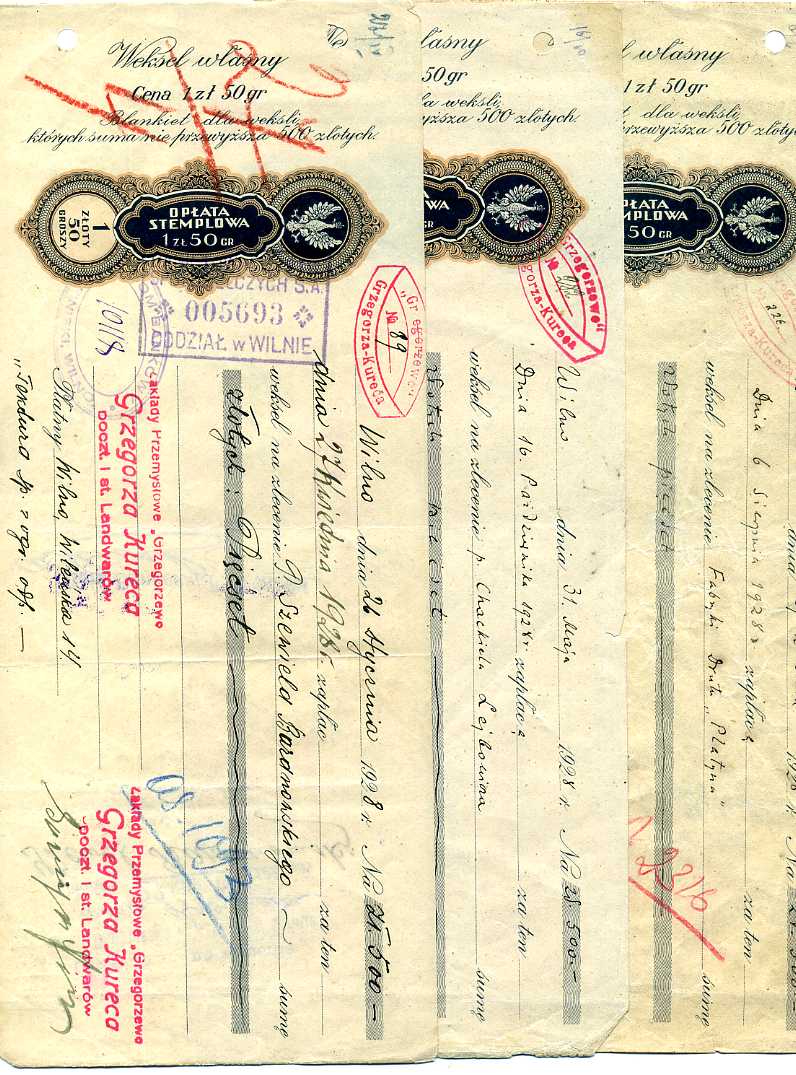 Weksel własny
Cena 1 zł 50 gr
Blankiet dla weksli,
których suma nie przewyższa 500 złotych.
1
ZŁOTY
50
GROSZY
OPŁATA
STEMPLOWA
1 ZŁ 50 GR
CZYCH S.A.
005693
ODDZIAŁ w WILNIE
"Grzegorzewo"
№ 89
Grzegorza-Kureća
Wilno dnia 26 stycznia 1928 r. Na zł. 500 –
dnia 27 kwietnia 1928 r. zapłac za ten
weksel na zlecenie P. Szewielda Baranowskiego ~ sumę
złotych: Pięćset
Zakłady Przemysłowe „Grzegorzewo
Grzegorza Kureca
poczt. i st. Landwarów
Zakłady Przemysłowe „Grzegorzewo
Grzegorza Kureca
poczt. i st. Landwarów
Płatny Wilno, Wileńska 14
sp. z ogr. odp. —
łasny
50 gr
la weksli,
wyższa 500 złotych.
ATA
LOWA
0 GR
Grzegorzewo"
№
gorza-Kureća
Wilno dnia 31. Maja 1928 r. Na zł 500.-
Dnia 16. Października 1928 r. zapłacę za ten
weksel na zlecenie p. Chackiela Lejbowicza sumę
złotych pięćset
l własny
1 zł 50 gr
dla weksli,
przewyższa 500 złotych.
PŁATA
MPLOWA
50 GR
226.
Dnia 6 Sierpnia 1928 r. zapłacę za ten
weksel na zlecenie Fabryki Drutu „Platyna" sumę
złotych pięćset
dnia